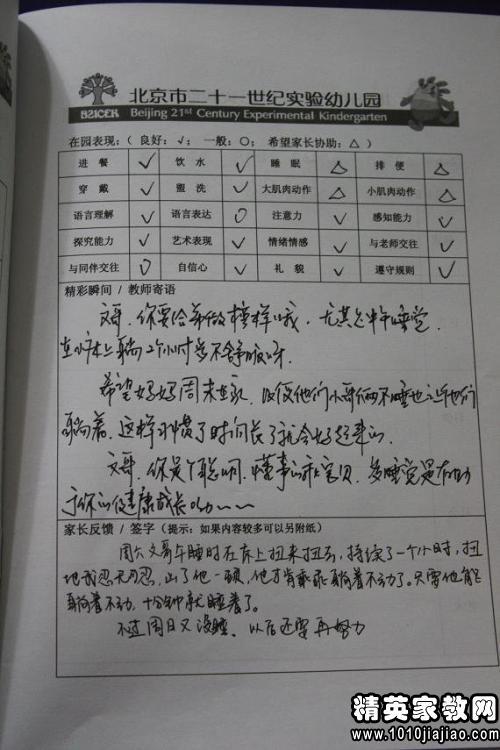 北京市二十一世纪实验幼儿园
BZICEK Beijing 21st Century Experimental Kindergarten
在园表现:( 良好: √; 一般: ○; 希望家长协助: △ )
进 餐 √ 饮 水 √ 睡 眠 △ 排 便 △
穿 戴 √ 盥 洗 √ 大肌肉动作 △ 小肌肉动作 △
语言理解 √ 语言表达 ○ 注意力 √ 感知能力 √
探究能力 √ 艺术表现 √ 情绪情感 √ 与老师交往 √
与同伴交往 ○ 自信心 √ 礼 貌 √ 遵守规则 √
精彩瞬间 / 教师寄语
文哥,你要给弟做榜样哦,尤其是中午睡觉,
在小床上躺2个小时多不舒服呀.
希望妈妈周末在家,即使他们小哥俩不睡也让他们
躺着,这样习惯了时间长了就会好起来的.
文哥,你是个聪明,懂事的大宝贝,多睡觉是有助
于你的健康成长的~~
家长反馈 / 签字 (提示: 如果内容较多可以另附纸)
周六文哥午睡时在床上扭来扭去,持续了一个小时,扭
地我忍无可忍,出了他一顿,他才肯乖乖躺着不动了。只需他能
躺着不动,十分钟就睡着了。
不过周日又没睡,以后还要再努力
精英家教网
www.1010jiajiao.com